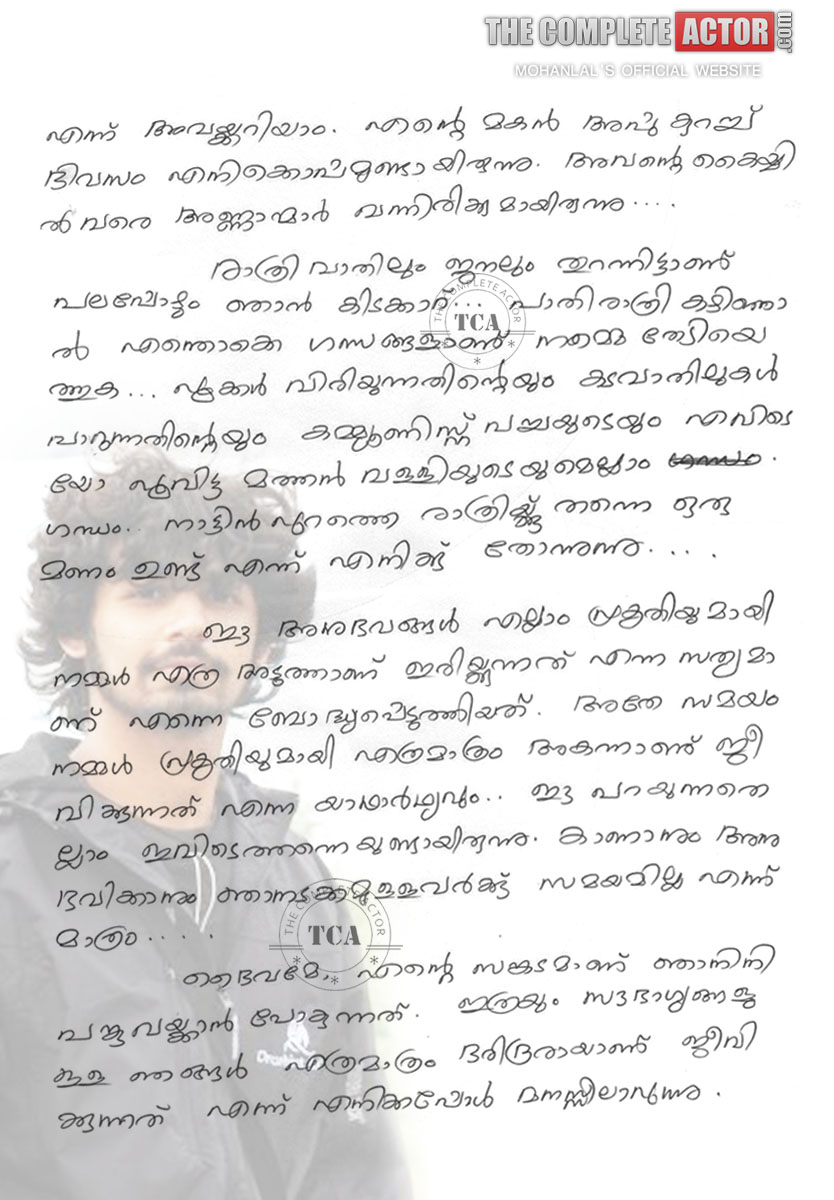 THE COMPLETE ACTOR.com
MOHANLAL'S OFFICIAL WEBSITE
എന്ന് അവയ്ക്കറിയാം. എന്റെ മകൻ അപ്പു കുറച്ച്
ദിവസം എനിക്കൊപ്പമുണ്ടായിരുന്നു. അവന്റെ കൈയ്യി
ൽ വരെ അണ്ണാന്മാർ വന്നിരിക്കുമായിരുന്നു....
രാത്രി വാതിലും ജനലും തുറന്നിട്ടാണ്
പലപ്പോഴും ഞാൻ കിടക്കാറ്... പാതിരാത്രി കഴിഞ്ഞാ
ൽ എന്തൊക്കെ ഗന്ധങ്ങളാണ് നമ്മെ തേടിയെ
ത്തുക... പൂക്കൾ വിരിയുന്നതിന്റെയും കടവാതിലുകൾ
പാറുന്നതിന്റെയും കമ്മ്യൂണിസ്റ്റ് പച്ചയുടെയും എവിടെ
യോ പൂവിട്ട മത്തൻ വള്ളിയുടെയുമെല്ലാം
ഗന്ധം.. നാട്ടിൻപുറത്തെ രാത്രിയ്ക്ക് തന്നെ ഒരു
മണം ഉണ്ട് എന്ന് എനിക്ക് തോന്നുന്നു....
ഈ അനുഭവങ്ങൾ എല്ലാം പ്രകൃതിയുമായി
നമ്മൾ എത്ര അടുത്താണ് ഇരിയ്ക്കുന്നത് എന്ന സത്യമാ
ണ് എന്നെ ബോദ്ധ്യപ്പെടുത്തിയത്. അതേ സമയം
നമ്മൾ പ്രകൃതിയുമായി എത്രമാത്രം അകന്നാണ് ജീ
വിക്കുന്നത് എന്ന യാഥാർഥ്യവും.. ഈ പറയുന്നതെ
ല്ലാം ഇവിടെത്തന്നെയുണ്ടായിരുന്നു. കാണാനും അനു
ഭവിക്കാനും ഞാനടക്കമുള്ളവർക്ക് സമയമില്ല എന്ന്
മാത്രം.....
ദൈവമേ, എന്റെ സങ്കടമാണ് ഞാനിനി
പങ്കുവയ്ക്കാൻ പോകുന്നത്. ഇത്രയും സൗഭാഗ്യങ്ങളു
ള്ള ഞങ്ങൾ എത്രമാത്രം ദരിദ്രരായാണ് ജീവി
ക്കുന്നത് എന്ന് എനിക്കപ്പോൾ മനസ്സിലാവുന്നു.
THE COMPLETE ACTOR
TCA
THE COMPLETE ACTOR
TCA